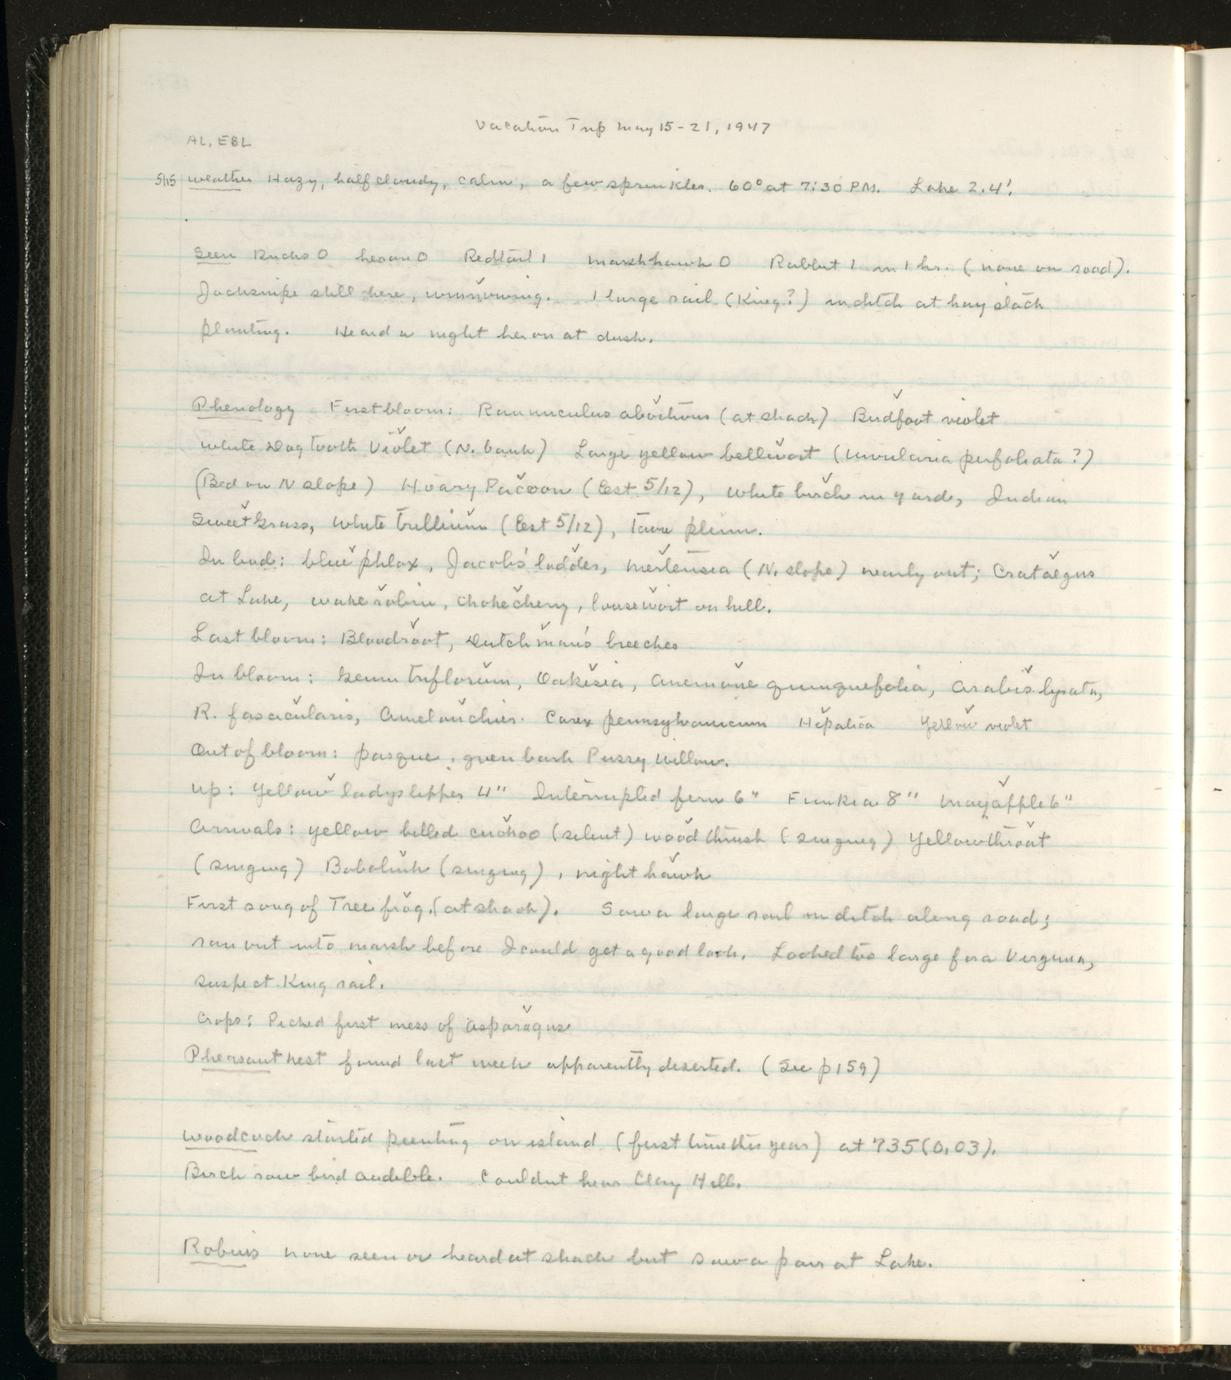 Vacation Trip May 15-21, 1947
AL, EBL
5/15 Weather Hazy, half cloudy, calm, a few sprinkles. 60° at 7:30 PM. Lake 2.4'.
Seen Ducks 0 heron 0 Redtail 1 marsh hawk 0 Rabbit 1 in 1 hr. (none on road).
Jacksnipe still here, winnowing. 1 large rail (King?) in ditch at hay stack
planting. Heard a night heron at dusk.
Phenology First bloom: Rannuculus abortivus (at shack) Birdfoot violet
White Dogtooth Violet (N. bank) Large yellow bellwort (Uvularia perfoliata?)
(Bed on N slope) Hoary Pucoon (Est 5/12), White birch in yard, Indian
Sweet Grass, White trillium (Est 5/12), Tame plum.
In bud: blue phlox, Jacob's ladder, Mertensia (N. slope) nearly out; Crataegus
at Lake, wake robin, chokecherry, lousewort on hill.
Last bloom: Bloodroot, Dutchman's breeches
In bloom: Geum triflorum, Oakesia, Anemone quinquefolia, Arabis lyrata,
R. fascicularis, Amelanchier. Carex pennsylvanicum Hepatica Yellow violet
Out of bloom: pasque, green bark Pussy Willow.
Up: Yellow ladyslipper 4" Interrupted fern 6" Funkia 8" Mayapple 6"
Arrivals: yellow billed cuckoo (silent) wood thrush (singing) Yellowthroat
(singing) Bobolink (singing), night hawk
First song of Tree frog. (at shack). Saw a large rail in ditch along road;
ran out into marsh before I could get a good look. Looked too large for a Virginia,
suspect King rail.
Crops: Picked first mess of asparagus
Pheasant nest found last week apparently deserted. (See p 159)
Woodcock started peenting on island (first time this year) at 735 (0.03).
Birch row bird audible. Couldnt hear Clay Hill.
Robins none seen or heard at shack but saw a pair at Lake.